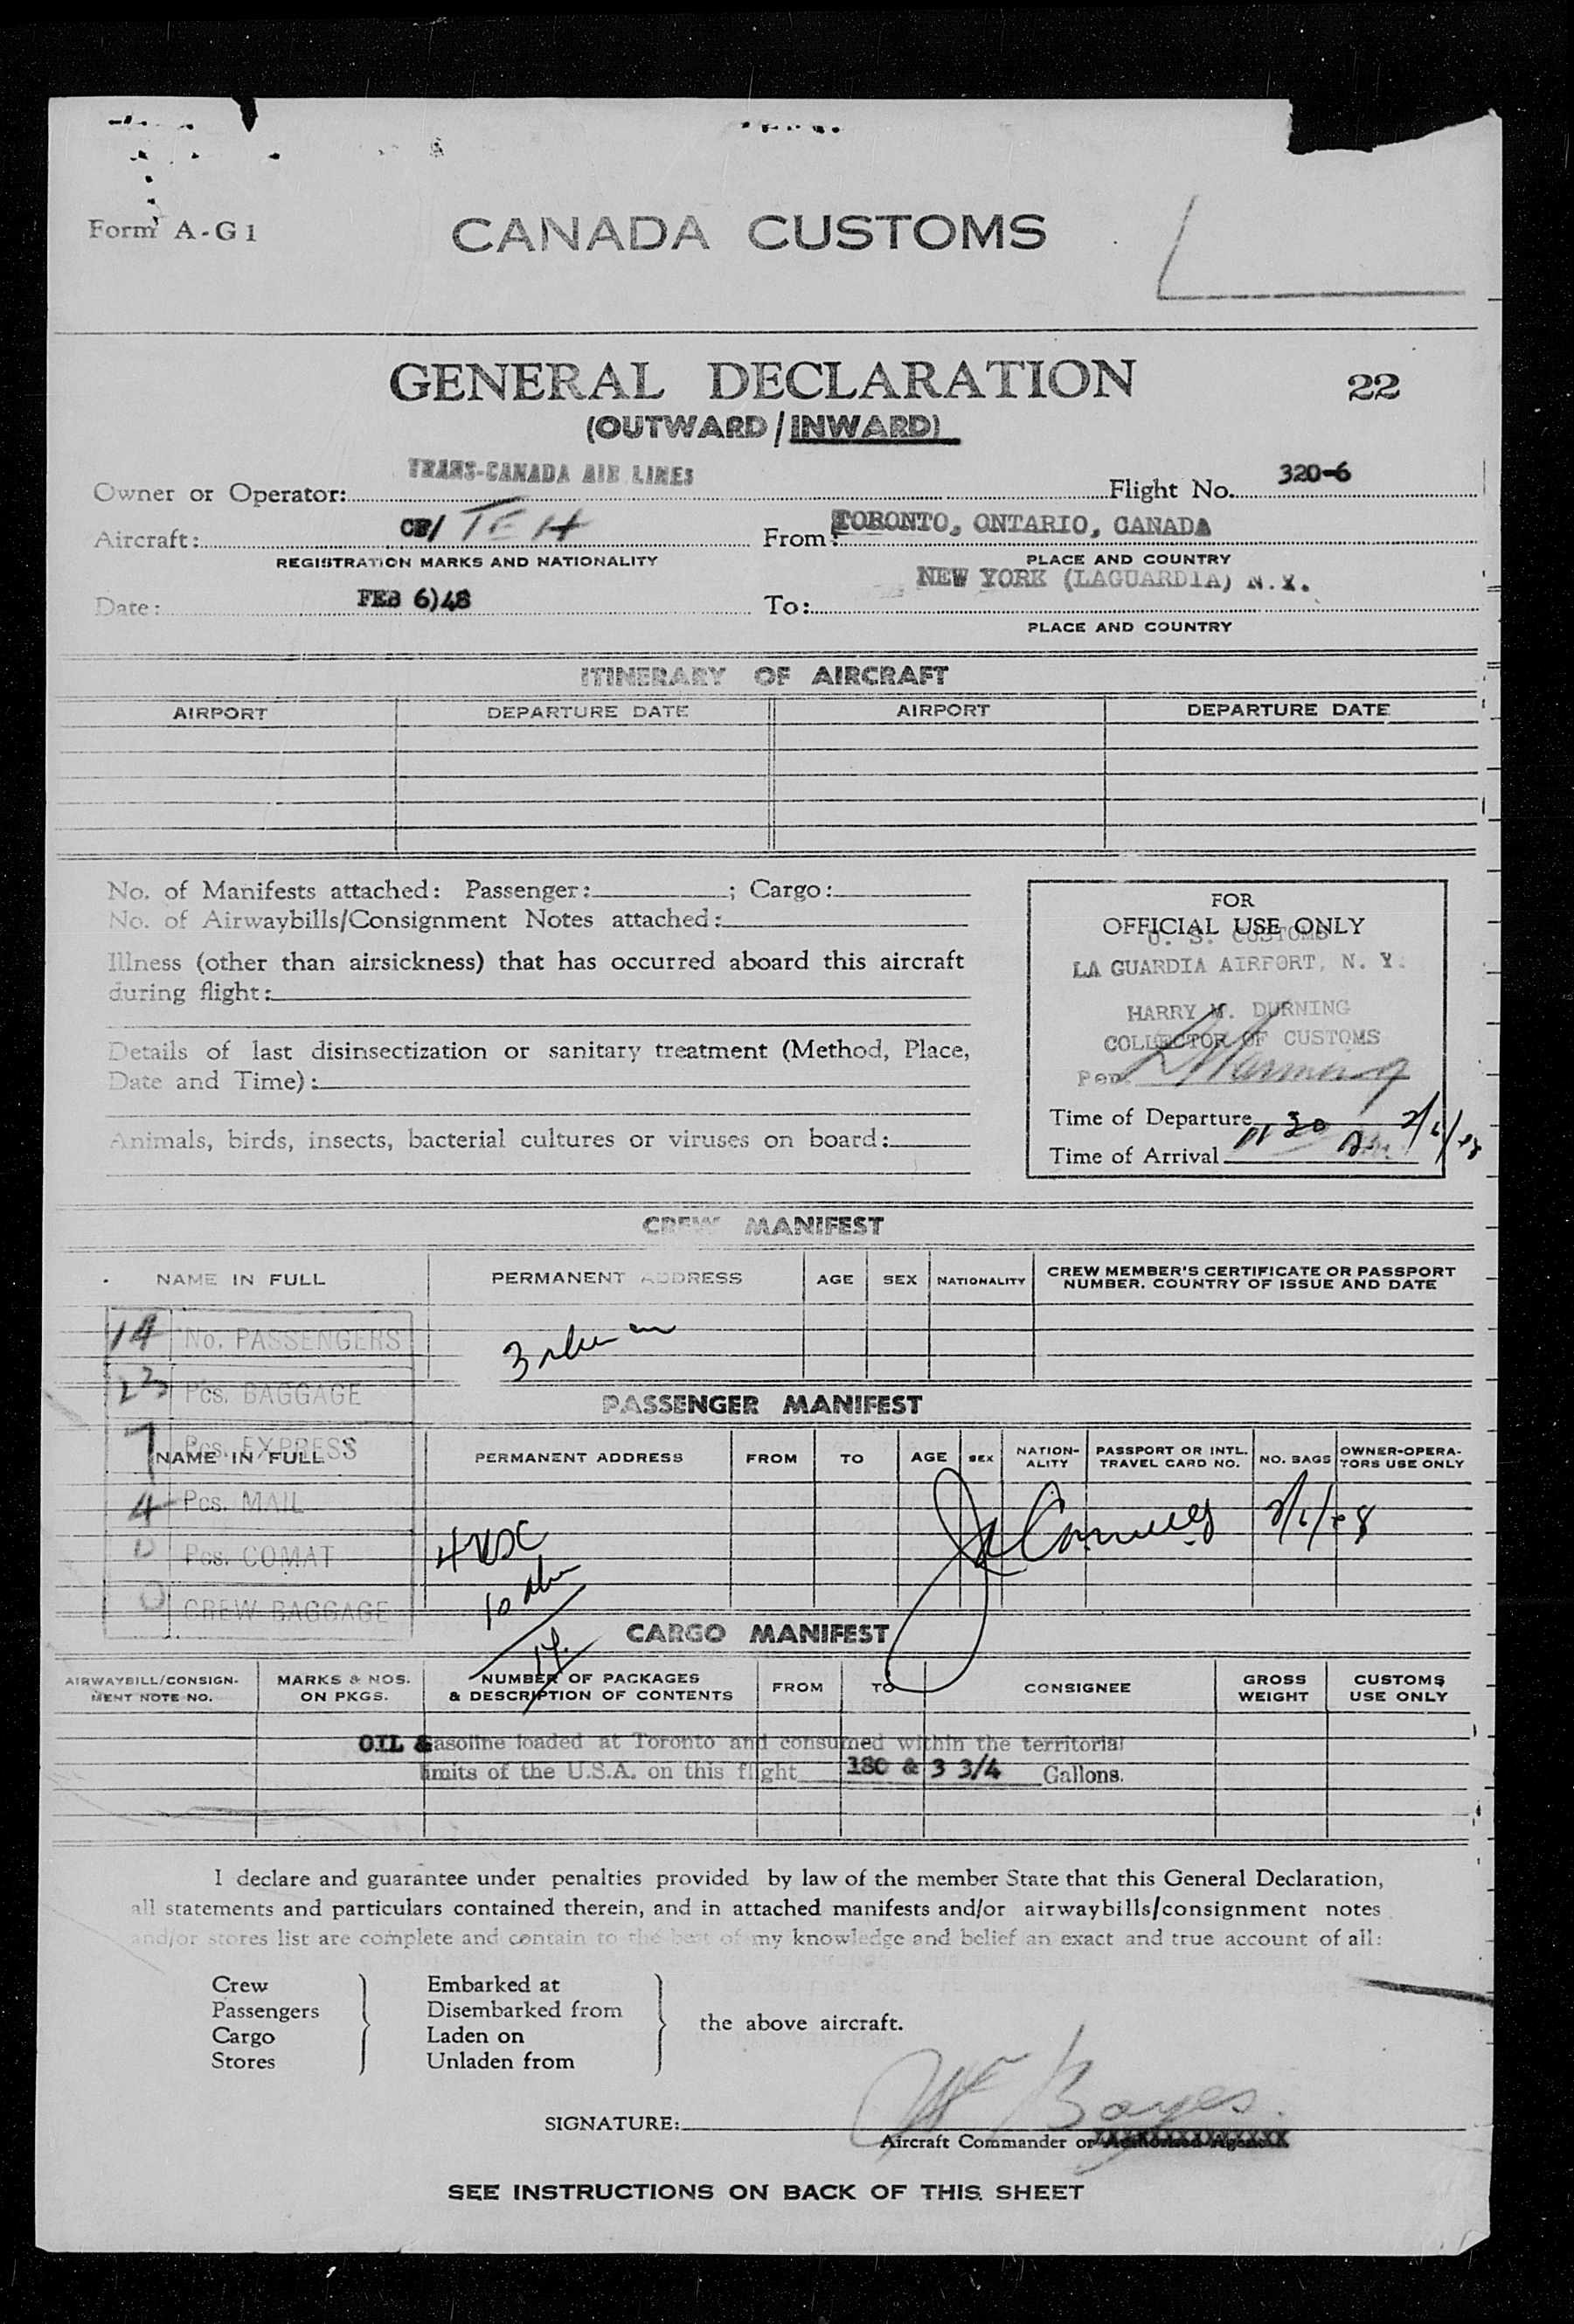 Form A-G1
CANADA CUSTOMS
GENERAL DECLARATION 22
(OUTWARD/INWARD)
Owner or Operator: TRANS-CANADA AIR LINES Flight No. 320-6
Aircraft: CF/ TEH From: TORONTO, ONTARIO, CANADA
REGISTRATION MARKS AND NATIONALITY PLACE AND COUNTRY
Date: FEB 6)48 To: NEW YORK (LAGUARDIA) N.Y.
PLACE AND COUNTRY
ITINERARY OF AIRCRAFT
AIRPORT DEPARTURE DATE AIRPORT DEPARTURE DATE
No. of Manifests attached: Passenger: ; Cargo:
No. of Airwaybills/Consignment Notes attached:
Illness (other than airsickness) that has occurred aboard this aircraft
during flight:
Details of last disinsectization or sanitary treatment (Method, Place,
Date and Time):
Animals, birds, insects, bacterial cultures or viruses on board:
FOR
OFFICIAL USE ONLY
U. S. CUSTOMS
LA GUARDIA AIRPORT, N. Y.
HARRY M. DURNING
COLLECTOR OF CUSTOMS
Per
Time of Departure
Time of Arrival 11 30 2/6/48
CREW MANIFEST
NAME IN FULL PERMANENT ADDRESS AGE SEX NATIONALITY CREW MEMBER'S CERTIFICATE OR PASSPORT
NUMBER. COUNTRY OF ISSUE AND DATE
14 No. PASSENGERS
3
23 Pcs. BAGGAGE
PASSENGER MANIFEST
7 Pcs. EXPRESS
NAME IN FULL PERMANENT ADDRESS FROM TO AGE SEX NATION-
ALITY PASSPORT OR INTL.
TRAVEL CARD NO. NO. BAGS OWNER-OPERA-
TORS USE ONLY
4 Pcs. MAIL
4 USC 2/6/48
0 Pcs. COMAT
10
0 CREW BAGGAGE
14
CARGO MANIFEST
AIRWAYBILL/CONSIGN-
MENT NOTE NO. MARKS & NOS.
ON PKGS. NUMBER OF PACKAGES
& DESCRIPTION OF CONTENTS FROM TO CONSIGNEE GROSS
WEIGHT CUSTOMS
USE ONLY
OIL & Gasoline loaded at Toronto and consumed within the territorial
limits of the U.S.A. on this flight 180 & 3 3/4 Gallons.
I declare and guarantee under penalties provided by law of the member State that this General Declaration,
all statements and particulars contained therein, and in attached manifests and/or airwaybills/consignment notes
and/or stores list are complete and contain to the best of my knowledge and belief an exact and true account of all:
Crew Embarked at
Passengers Disembarked from
the above aircraft.
Cargo Laden on
Stores Unladen from
SIGNATURE: WF Boyes.
Aircraft Commander or Authorised Agent
SEE INSTRUCTIONS ON BACK OF THIS SHEET